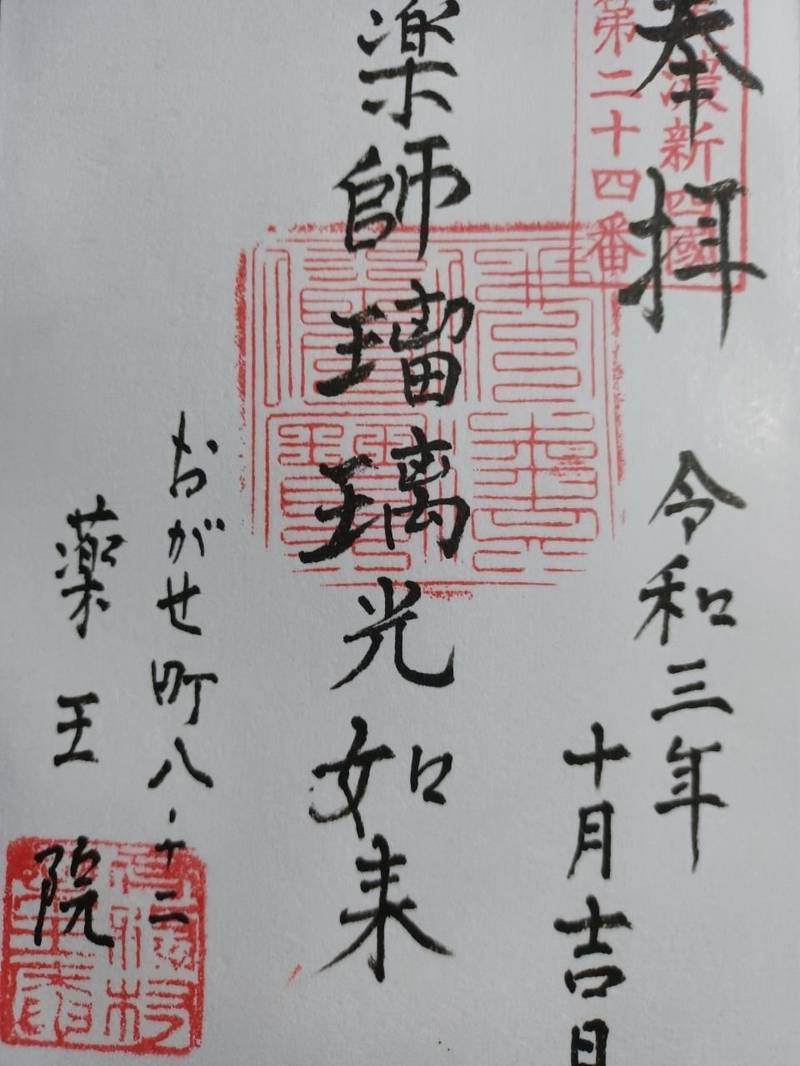 奉拝
濃新四國
第二十四番
令和三年
十月吉日
薬師瑠璃光如来
おがせ町八ー十二
薬王院